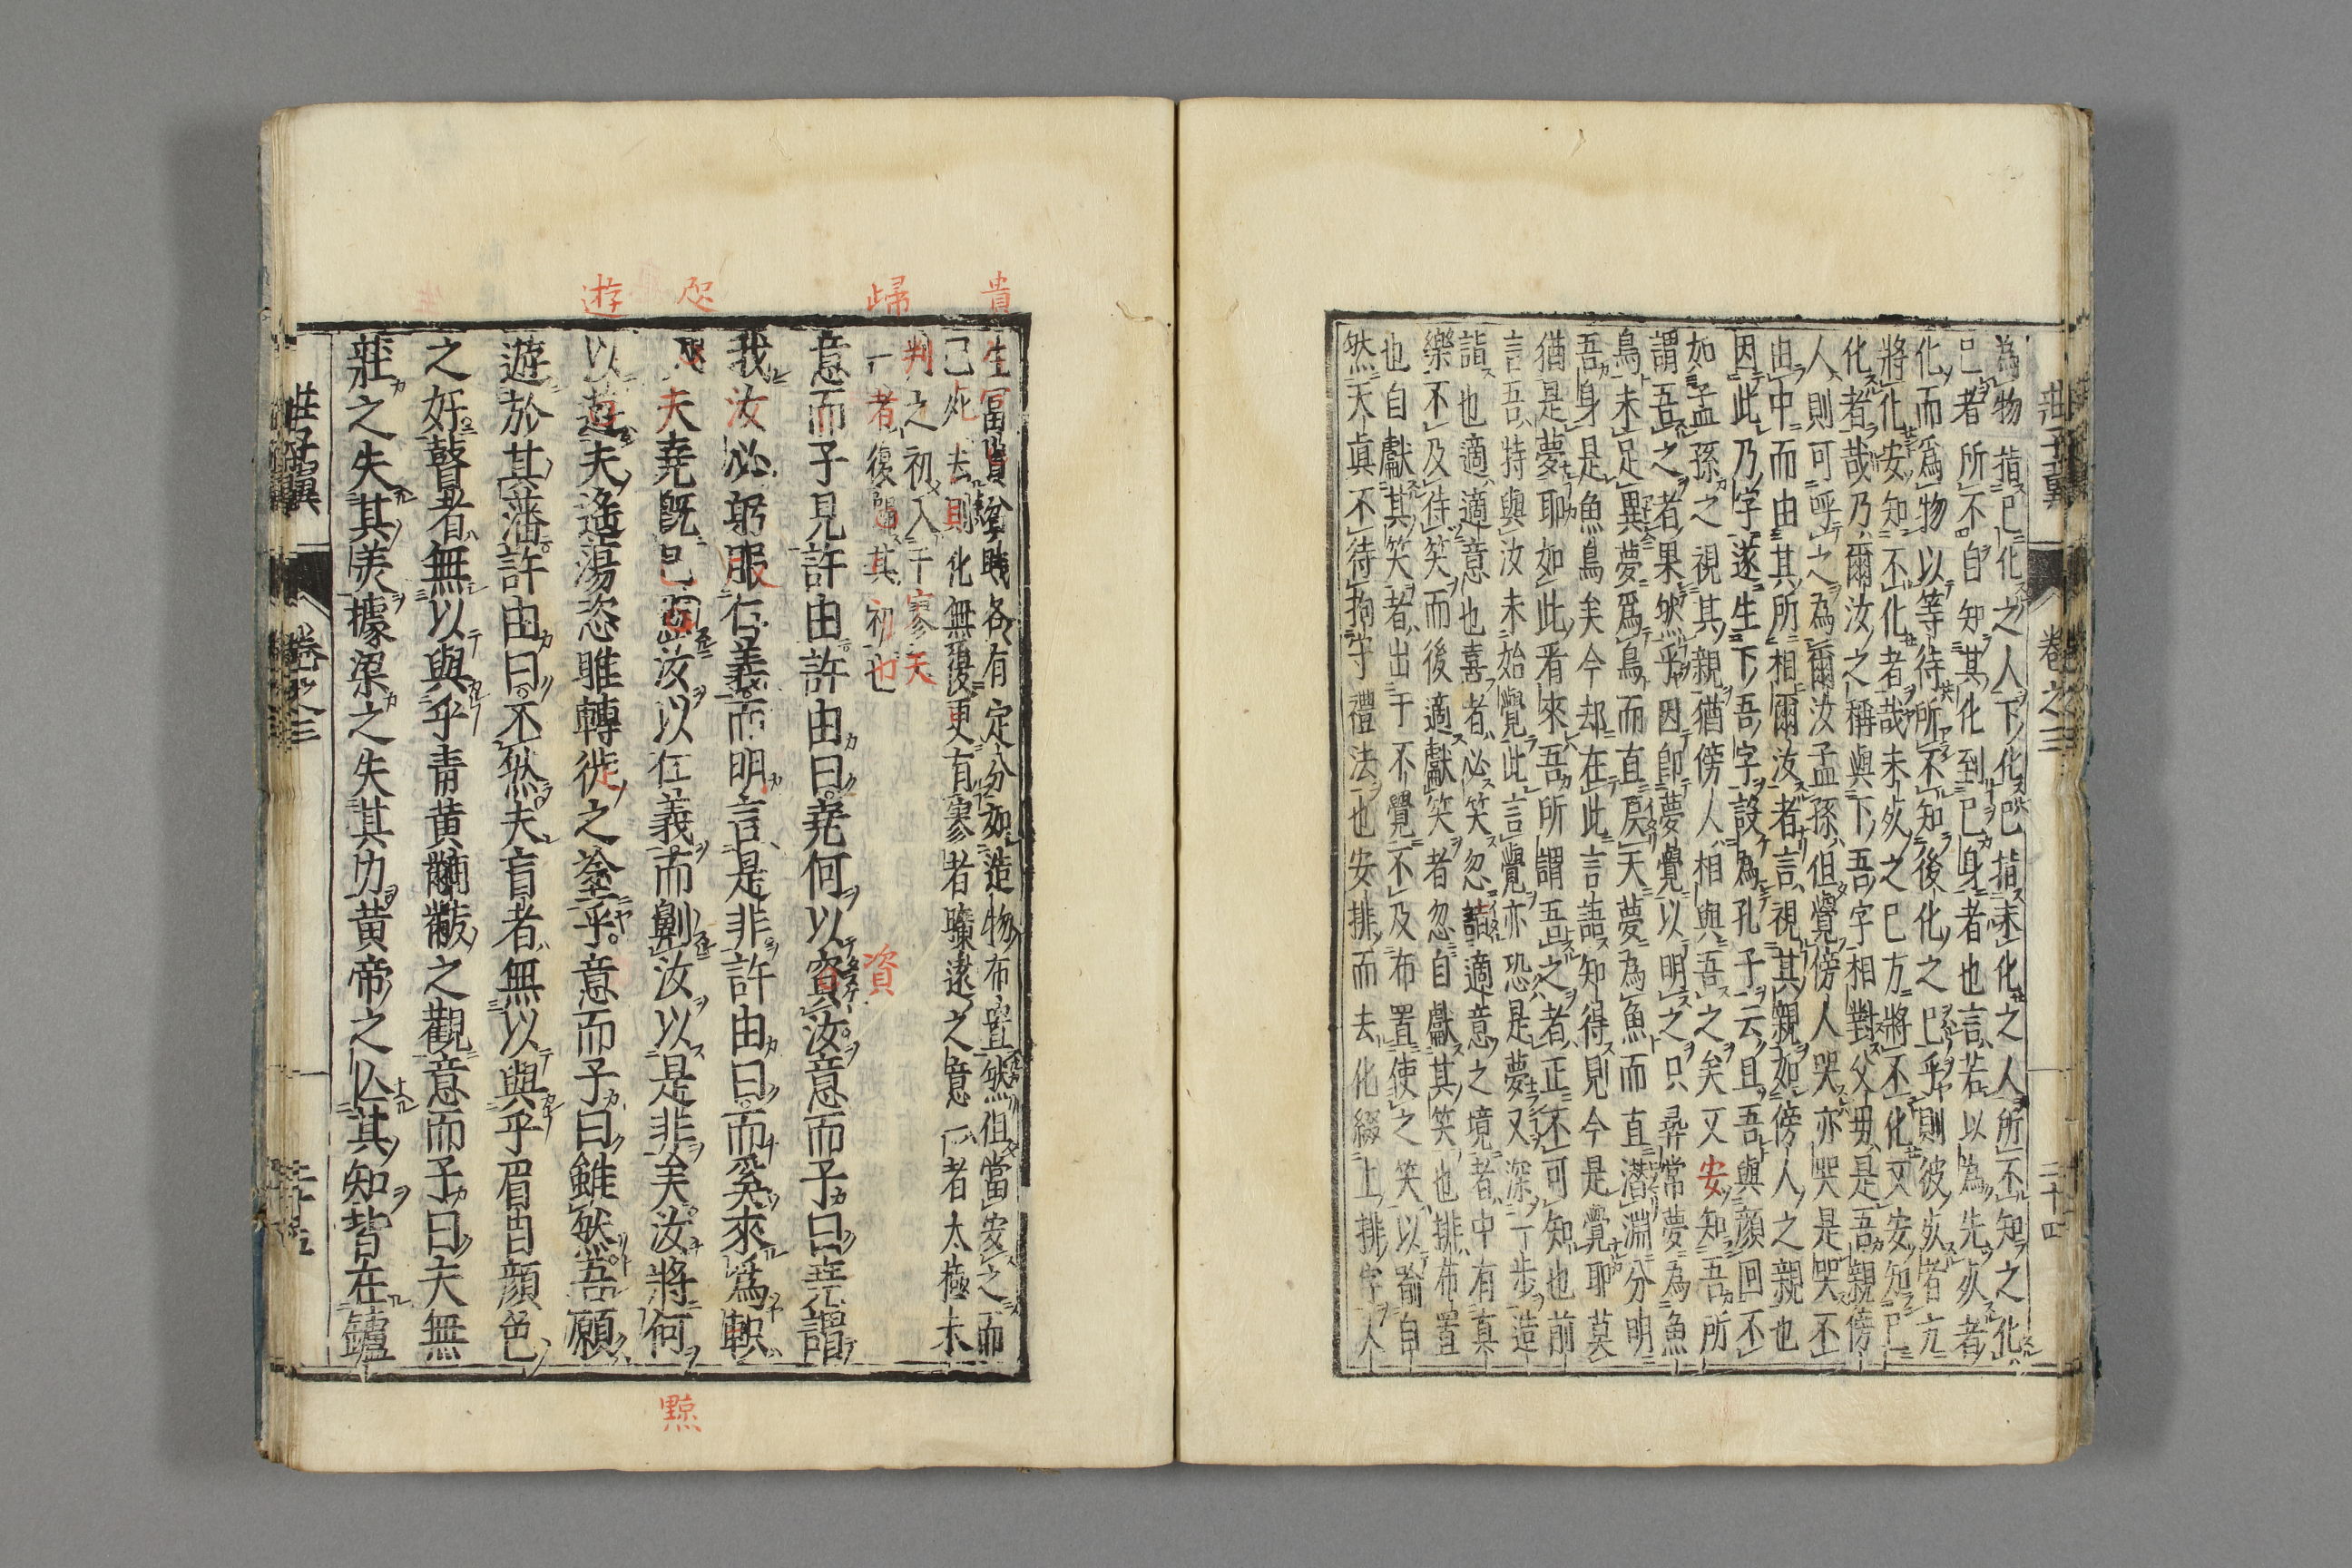 為物指已化之人下化已指未化之人所不知之化
已者所不自知其化到已身者也言若以為先灰者
化而為物以等待所不知後化之已乎則彼灰者亢
將化安知不化者哉未灰之已方將不化又安知已
化者哉乃爾汝之稱與下吾字相對父母是吾親傍
人則可呼之為爾汝孟孫但覺傍人哭亦哭是哭不
由中而由其所相爾汝者言視其親如傍人之親也
因此乃字遂生下吾字設為孔子云且吾與顔回不
如孟孫之視其親猶傍人相與吾之矣又安知吾所
謂吾之者果然乎因卽夢覺以明之只尋常夢為魚
鳥未足異夢為鳥而直戾天夢為魚而直潛淵分明
吾身是魚鳥矣今却在此言語知得見今是覺耶莫
猶是夢耶如此看來吾所謂吾之者正不可知也前
言吾特與汝未始覺此言覺亦恐是夢又深一步造
詣也適適意也喜者必笑忽詣適意之境者中有真
樂不及待笑而後適獻笑者忽自獻其笑也排布置
也自獻其笑者出于不覺不及布置使之笑以喻自
然天真不待拘守禮法也安排而去化綴上排字人
莊子翼 卷之三 二十四
生富貴貧賤各有定分如造物布置然但當安之而
已死去則化無復更有寥者曠遠之意一者太極未
判之初入于寥天
一者復歸其初也
意而子見許由許由曰堯何以資汝意而子曰堯謂
我汝必躬服仁義而明言是非許由曰而奚來爲軹
夫堯既已黥汝以仁義而劓汝以是非矣汝將何
以遊夫遙蕩恣睢轉徙之塗乎意而子曰雖然吾願
遊於其藩許由曰不然夫盲者無以與乎眉目顔色
之好瞽者無以與乎青黄黼黻之觀意而子曰夫無
莊之失其美據梁之失其力黄帝之亾其知皆在鑪
莊子翼 卷之三 二十五
貴
歸
咫
遊
資
黥